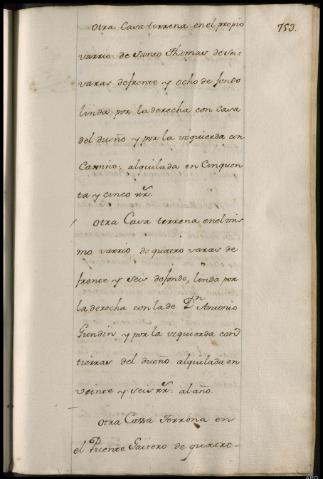 753.
Otra Casa terrena en el propio
varrio de Santo Thomas de seis
varas de frente y ocho de fondo
linda por la derecha con casa
del dueño y por la izquierda con
Camino, alquilada en Cinquen
ta y cinco rr.
Otra Casa terrena en el mis
mo varrio de quatro varas de
frente y seis de fondo, linda por
la derecha con la de Dn Antonio
y por la izquierda con
tierras del dueño alquilada en
veinte y seis rr. al año.
Otra Cassa Terrena en
el Puente Gaitero de quatro